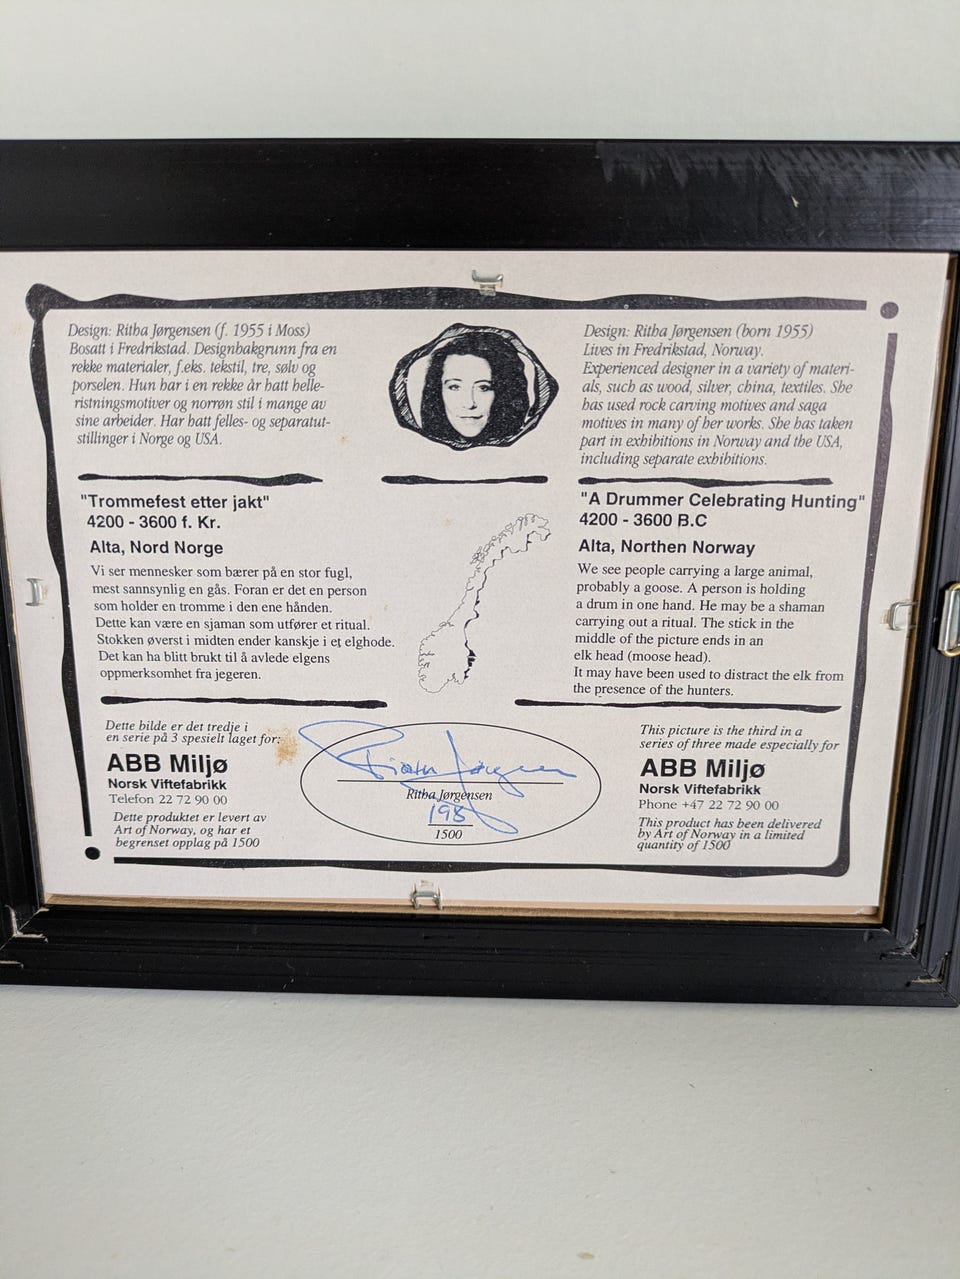 Design: Ritha Jørgensen (f. 1955 i Moss)
Bosatt i Fredrikstad. Designbakgrunn fra en
rekke materialer, f.eks. tekstil, tre, sølv og
porselen. Hun har i en rekke år hatt helle-
ristningsmotiver og norrøn stil i mange av
sine arbeider. Har hatt felles- og separatut-
stillinger i Norge og USA.
Design: Ritha Jørgensen (born 1955)
Lives in Fredrikstad, Norway.
Experienced designer in a variety of materi-
als, such as wood, silver, china, textiles. She
has used rock carving motives and saga
motives in many of her works. She has taken
part in exhibitions in Norway and the USA,
including separate exhibitions.
"Trommefest etter jakt"
4200 - 3600 f. Kr.
Alta, Nord Norge
Vi ser mennesker som bærer på en stor fugl,
mest sannsynlig en gås. Foran er det en person
som holder en tromme i den ene hånden.
Dette kan være en sjaman som utfører et ritual.
Stokken øverst i midten ender kanskje i et elghode.
Det kan ha blitt brukt til å avlede elgens
oppmerksomhet fra jegeren.
"A Drummer Celebrating Hunting"
4200 - 3600 B.C
Alta, Northen Norway
We see people carrying a large animal,
probably a goose. A person is holding
a drum in one hand. He may be a shaman
carrying out a ritual. The stick in the
middle of the picture ends in an
elk head (moose head).
It may have been used to distract the elk from
the presence of the hunters.
Dette bilde er det tredje i
en serie på 3 spesielt laget for:
ABB Miljø
Norsk Viftefabrikk
Telefon 22 72 90 00
Dette produktet er levert av
Art of Norway, og har et
begrenset opplag på 1500
Ritha Jørgensen
198
1500
This picture is the third in a
series of three made especially for
ABB Miljø
Norsk Viftefabrikk
Phone +47 22 72 90 00
This product has been delivered
by Art of Norway in a limited
quantity of 1500